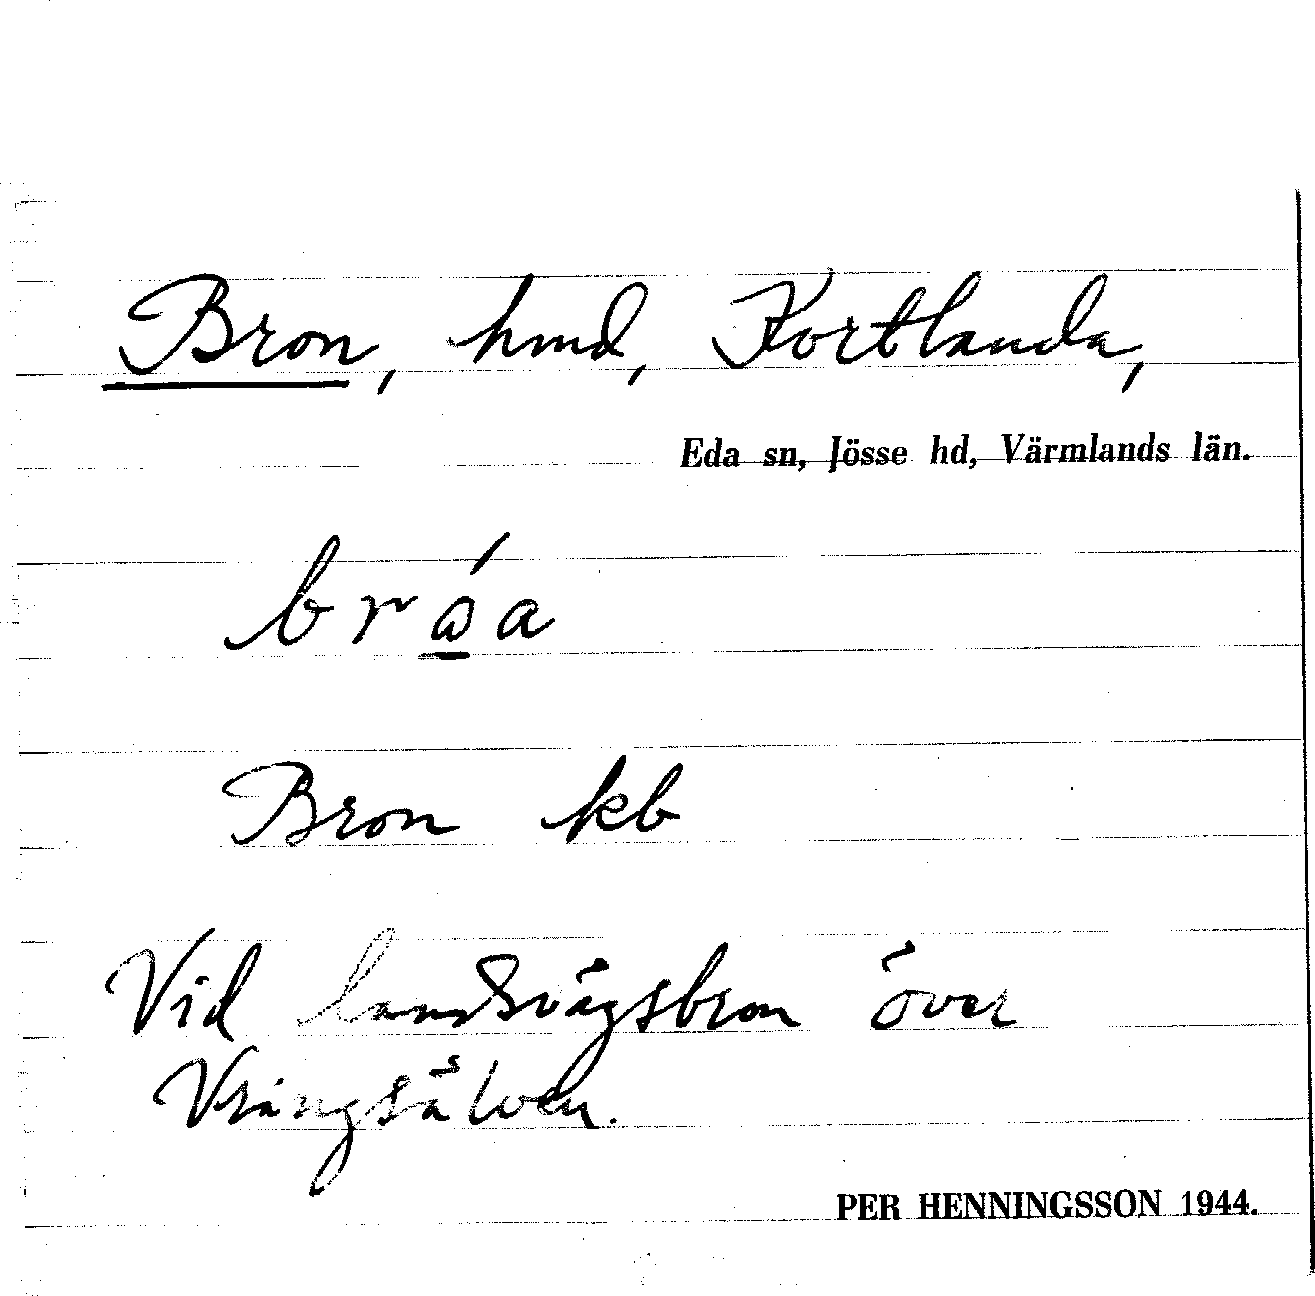 Bron, hmd, Kortlanda,
Eda sn, Jösse hd, Värmlands län.
Bron kb
Vid landsvägsbron över
Vrångsälven.
PER HENNINGSSON 1944.